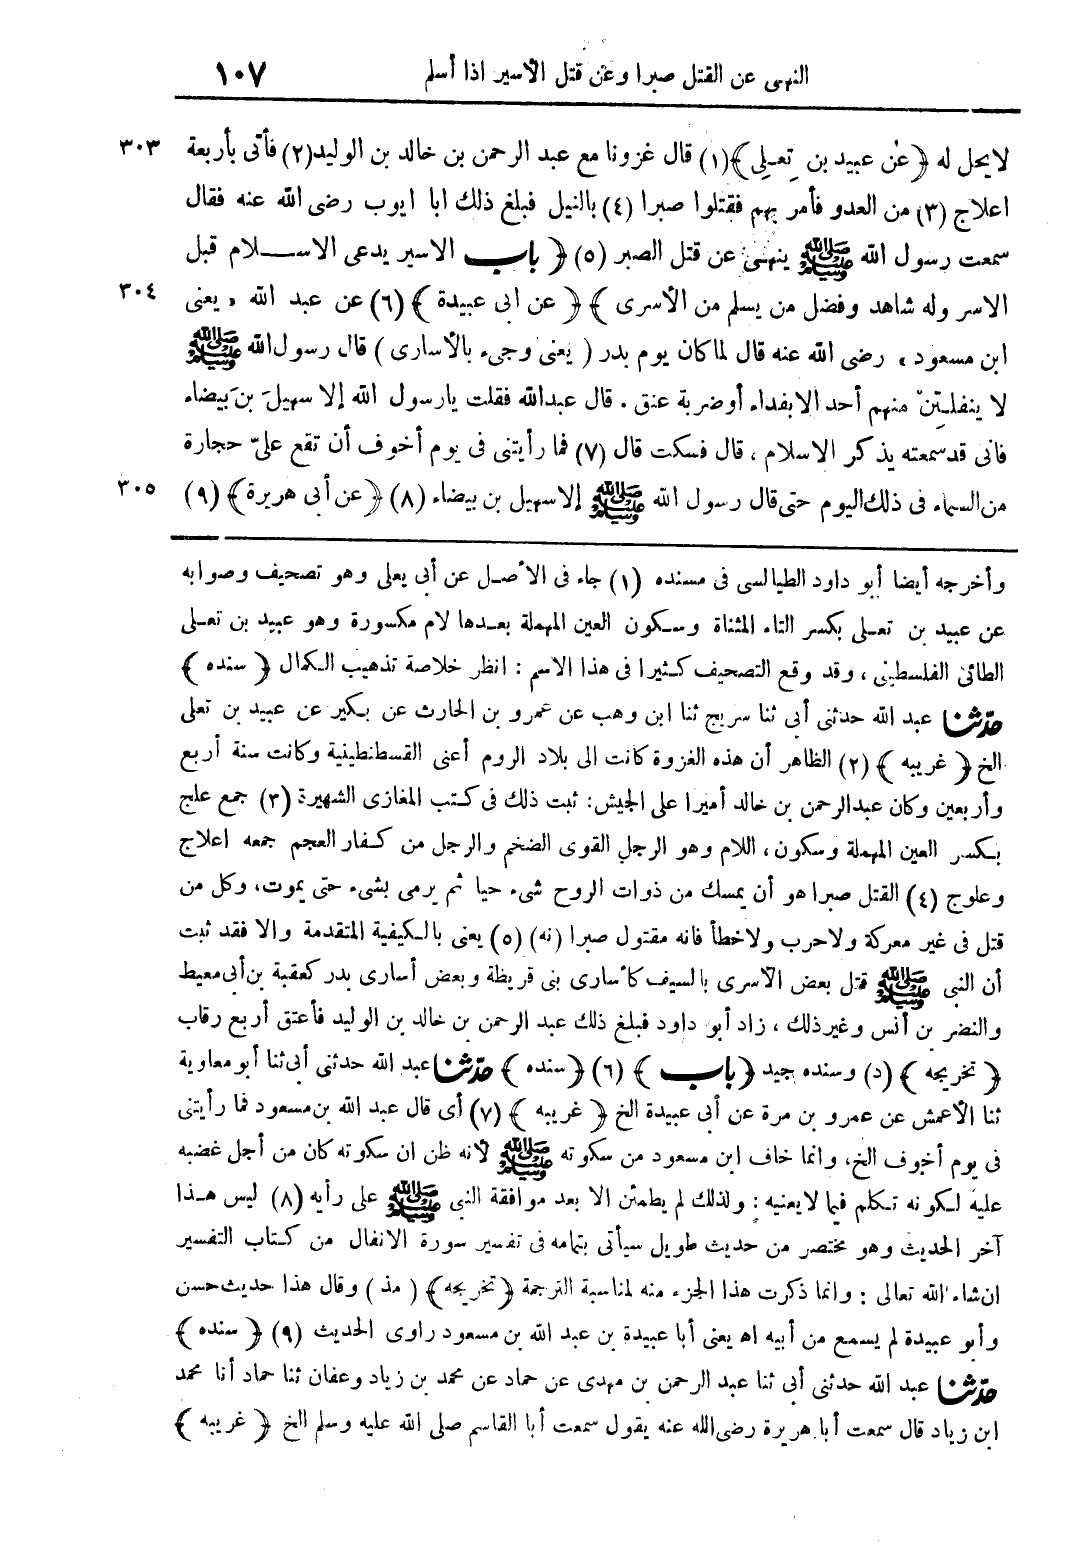 النهى عن القتل صبرا وعن قتل الأسير اذا أسلم ١٠٧
لايحل له ﴿عن عبيد بن تِعـلِى﴾(١) قال غزونا مع عبد الرحمن بن خالد بن الوليد(٢) فأتى بأربعة ٣٠٣
اعلاج (٣) من العدو فأمر بهم فقتلوا صبرا (٤) بالنيل فبلغ ذلك ابا ايوب رضى الله عنه فقال
سمعت رسول الله ﷺ ينهى عن قتل الصبر (٥) ﴿ باب الاسير يدعى الاســـلام قبل
الاسر وله شاهد وفضل من يسلم من الأسرى ﴾ ﴿ عن ابى عبيدة ﴾ (٦) عن عبد الله ، يعنى ٣٠٤
ابن مسعود ، رضى الله عنه قال لما كان يوم بدر ( يعنى وجىء بالأسارى ) قال رسول الله ﷺ
لا ينفلتِنّ منهم أحد الا بفداء أو ضربة عنق . قال عبدالله فقلت يارسول الله إلا سهيلَ بنَ بيضاء
فانى قد سمعته يذكر الاسلام ، قال فسكت قال (٧) فما رأيتنى فى يوم أخوف أن تقع علىّ حجارة
من السماء فى ذلك اليوم حتى قال رسول الله ﷺ إلا سهيل بن بيضاء (٨) ﴿ عن أبى هريرة ﴾ (٩) ٣٠٥
وأخرجه أيضا أبو داود الطيالسى فى مسنده (١) جاء فى الأصل عن أبى يعلى وهو تصحيف وصوابه
عن عبيد بن تعـلى بكسر التاء المثناة وسـكون العين المهملة بعـدها لام مكسورة وهو عبيد بن تعـلى
الطائى الفلسطينى ، وقد وقع التصحيف كـثيرا فى هذا الاسم : انظر خلاصة تذهيب الـكمال ﴿ سنده ﴾
حدّثنا عبد الله حدثنى أبى ثنا سريج ثنا ابن وهب عن عمرو بن الحارث عن بكير عن عبيد بن تعلى
الخ ﴿ غريبه ﴾ (٢) الظاهر أن هذه الغزوة كانت الى بلاد الروم أعنى القسطنطينية وكانت سنة أربع
وأربعين وكان عبدالرحمن بن خالد أميرا على الجيش: ثبت ذلك فى كتب المغازى الشهيرة (٣) جمع علج
بكسر العين المهملة وسكون ، اللام وهو الرجل القوى الضخم والرجل من كـفار العجم جمعه اعلاج
وعلوج (٤) القتل صبرا هو أن يمسك من ذوات الروح شىء حيا ثم يرمى بشىء حتى يموت، وكل من
قتل فى غير معركة ولا حرب ولا خطأ فانه مقتول صبرا (نه) (٥) يعنى بالـكيفية المتقدمة والا فقد ثبت
أن النبى ﷺ قتل بعض الأسرى بالسيف كأسارى بنى قريظة وبعض أسارى بدر كعقبة بن أبى معيط
والنضر بن أنس وغير ذلك ، زاد أبو داود فبلغ ذلك عبد الرحمن بن خالد بن الوليد فأعتق أربع رقاب
﴿ تخريجه ﴾ (د) وسنده جيد ﴿ باب ﴾ (٦) ﴿ سنده ﴾ حدّثنا عبد الله حدثنى أبى ثنا أبو معاوية
ثنا الأعمش عن عمرو بن مرة عن أبى عبيدة الخ ﴿ غريبه ﴾ (٧) أى قال عبد الله بن مسعود فما رأيتنى
فى يوم أخوف الخ، وانما خاف ابن مسعود من سكوته ﷺ لأنه ظن ان سكوته كان من أجل غضبه
عليه لـكونه تـكلم فيما لايعنيه : ولذلك لم يطمئن الا بعد موافقة النبى ﷺ على رأيه (٨) ليس هـذا
آخر الحديث وهو مختصر من حديث طويل سيأتى بتمامه فى تفسير سورة الانفال من كـتاب التفسير
ان شاء الله تعالى : وانما ذكرت هذا الجزء منه لمناسبة الترجمة ﴿ تخريجه ﴾ ( مذ ) وقال هذا حديث حسن
وأبو عبيدة لم يسمع من أبيه اه يعنى أبا عبيدة بن عبد الله بن مسعود راوى الحديث (٩) ﴿ سنده ﴾
حدّثنا عبد الله حدثنى أبى ثنا عبد الرحمن بن مهدى عن حماد عن محمد بن زياد وعفان ثنا حماد أنا محمد
ابن زياد قال سمعت أبا هريرة رضى الله عنه يقول سمعت أبا القاسم صلى الله عليه وسلم الخ ﴿ غريبه ﴾